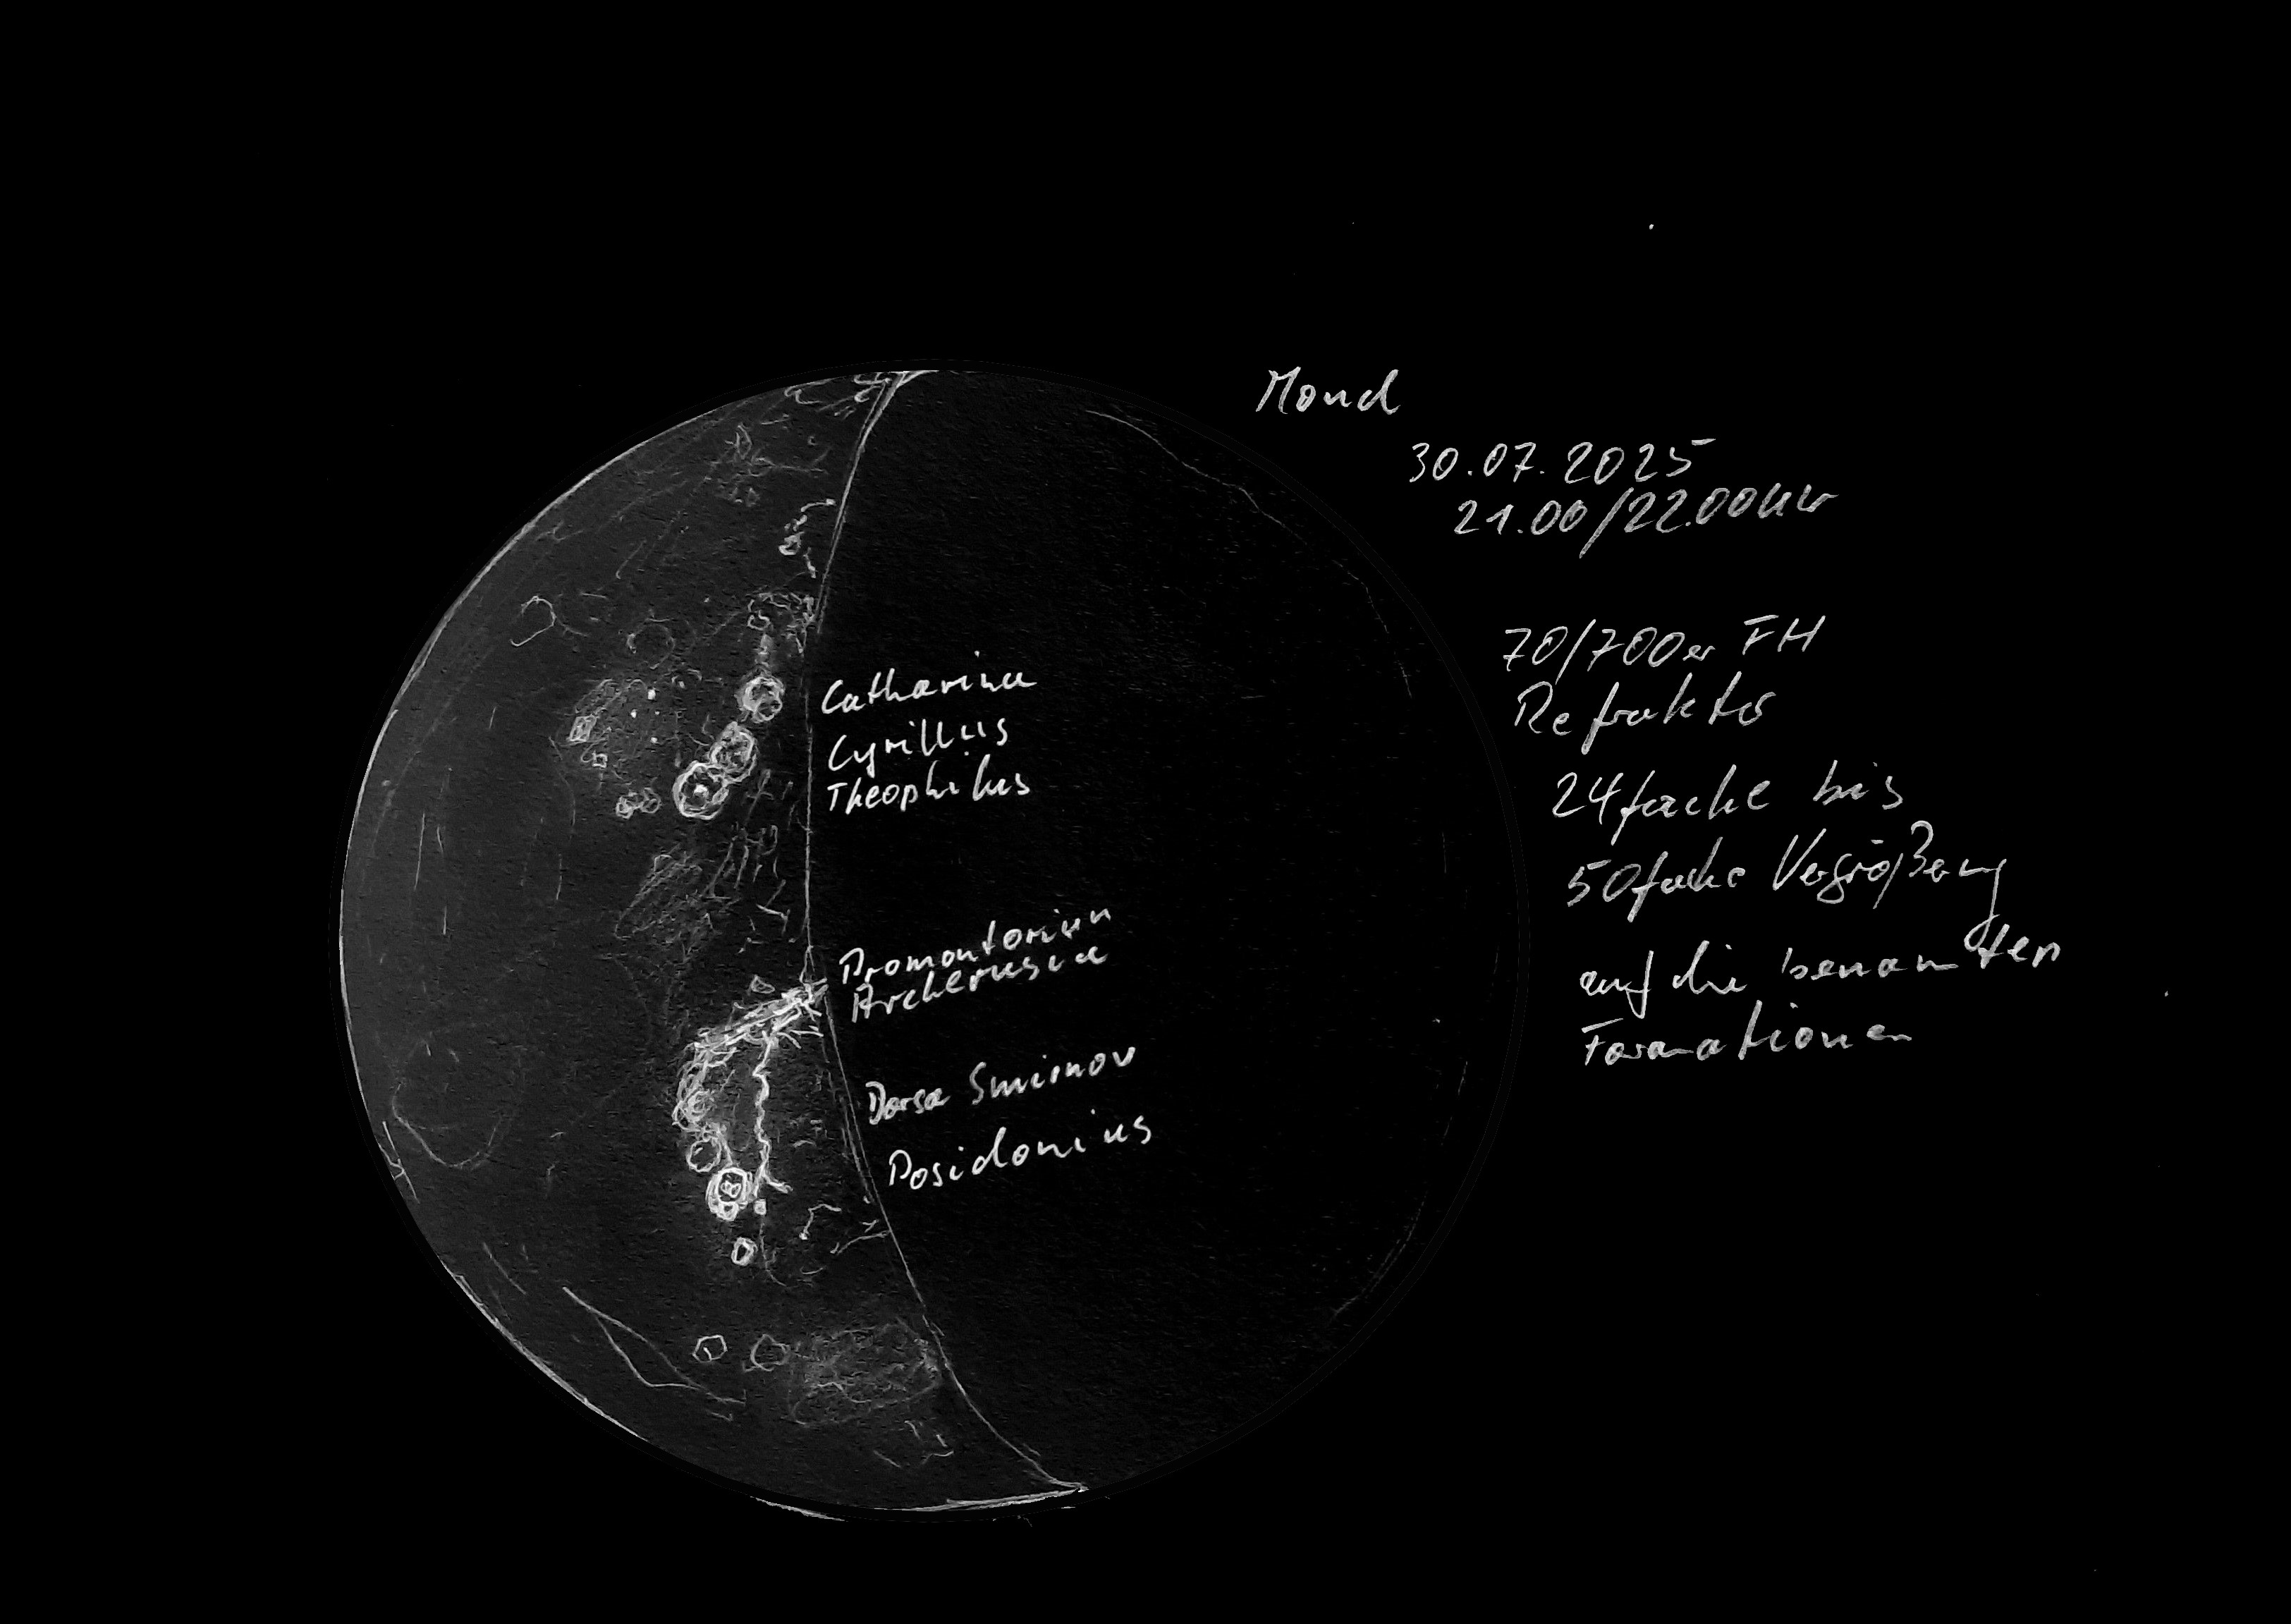 Mond
30.07.2025
21.00/22.00Uhr
70/700er FH
Refraktor
24fache bis
50fache Vergrößerung
auf die benannten
Formationen
Catharina
Cyrillus
Theophilus
Promontorium
Archerusia
Dorsa Smirnov
Posidonius